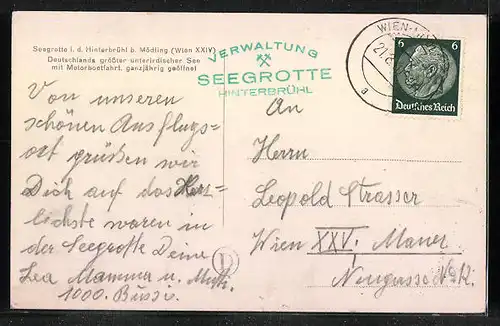 Seegrotte i. d. Hinterbrühl b. Mödling (Wien XXIV)
Deutschlands größter unterirdischer See
mit Motorbootfahrt, ganzjährig geöffnet
VERWALTUNG
SEEGROTTE
HINTERBRÜHL
WIEN
6 6
Deutsches Reich
a
Von unseren
schönen Ausflugs=
ort grüßen wir
Dich auf das Herz=
lichste waren in
der Seegrotte Deine
Lea Mamma u. Mutti.
1000. Bussi.
D
An
Herrn
Leopold Strasser
Wien XXV, Mauer
Neugasse